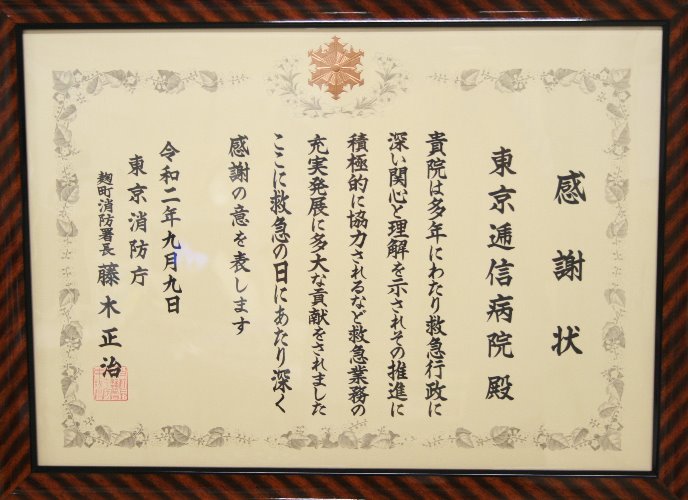 感謝状
東京逓信病院 殿
貴院は多年にわたり救急行政に
深い関心と理解を示されその推進に
積極的に協力されるなど救急業務の
充実発展に多大な貢献をされました
ここに救急の日にあたり深く
感謝の意を表します
令和二年九月九日
東京消防庁
麹町消防署長 藤木正治